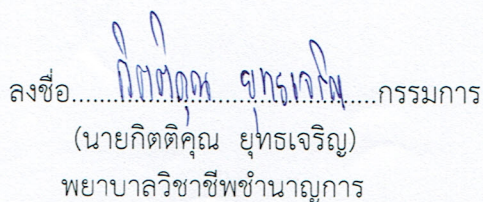 ลงชื่อ....กิตติคุณ ยุทธเจริญ....กรรมการ
(นายกิตติคุณ ยุทธเจริญ)
พยาบาลวิชาชีพชำนาญการ